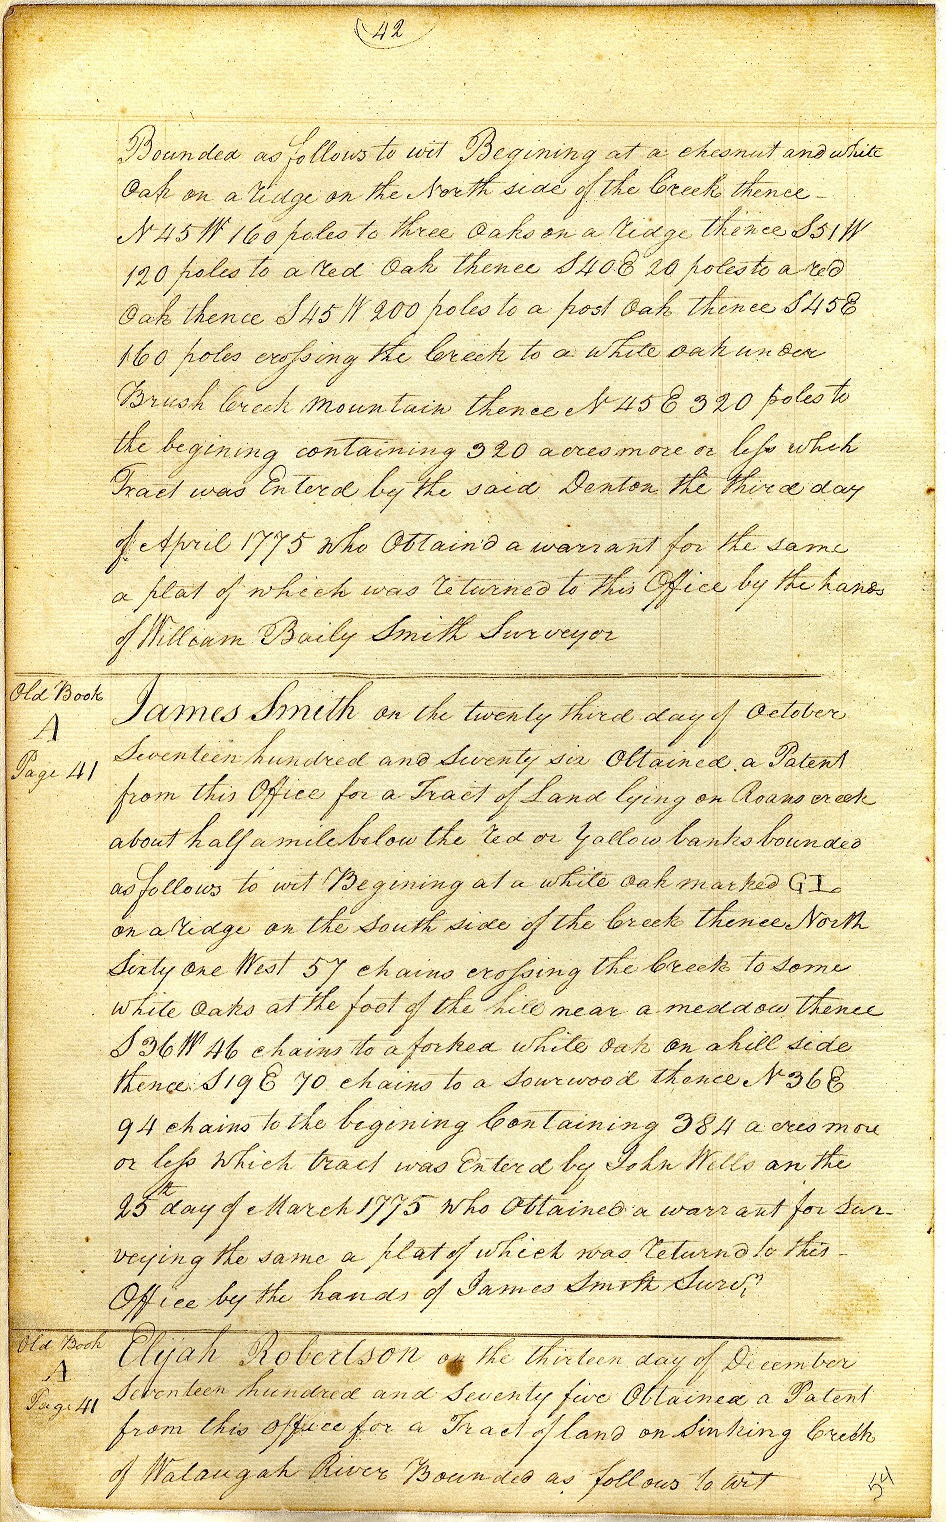 42
Bounded as follows to wit Begining at a chesnut and white
Oak on a ridge on the North side of the Creek thence
N 45 W 160 poles to three Oaks on a ridge thence S 51 W
120 poles to a red Oak thence S 40 E 20 poles to a red
Oak thence S 45 W 200 poles to a post Oak thence S 45 E
160 poles crossing the Creek to a white oak under
Brush Creek Mountain thence N 45 E 320 poles to
the begining containing 320 acres more or less which
Tract was Enterd by the said Denton the third day
of April 1775 who Obtaind a warrant for the same
a plat of which was returned to this Office by the hands
of William Baily Smith Surveyor
Old Book
A
Page 41
James Smith on the twenty third day of October
Seventeen hundred and Seventy six Obtained a Patent
from this Office for a Tract of Land lying on Roans creek
about half a mile below the red or Yallow banks bounded
as follows to wit Begining at a white oak marked GI
on a ridge on the South side of the Creek thence North
Sixty one West 57 chains crossing the Creek to some
white Oaks at the foot of the hill near a meddow thence
S 36 W 46 chains to a forked white oak on a hill side
thence S 19 E 70 chains to a Sourwood thence N 36 E
94 chains to the begining Containing 384 acres more
or less which tract was Enterd by John Wells on the
25th day of March 1775 who Obtained a warrant for Sur-
veying the same a plat of which was returnd to this
Office by the hands of James Smith Survr
Old Book
A
Page 41
Elijah Robertson on the thirteen day of December
Seventeen hundred and Seventy five Obtained a Patent
from this office for a Tract of land on Sinking Creek
of Wataugah River Bounded as follows to wit
54